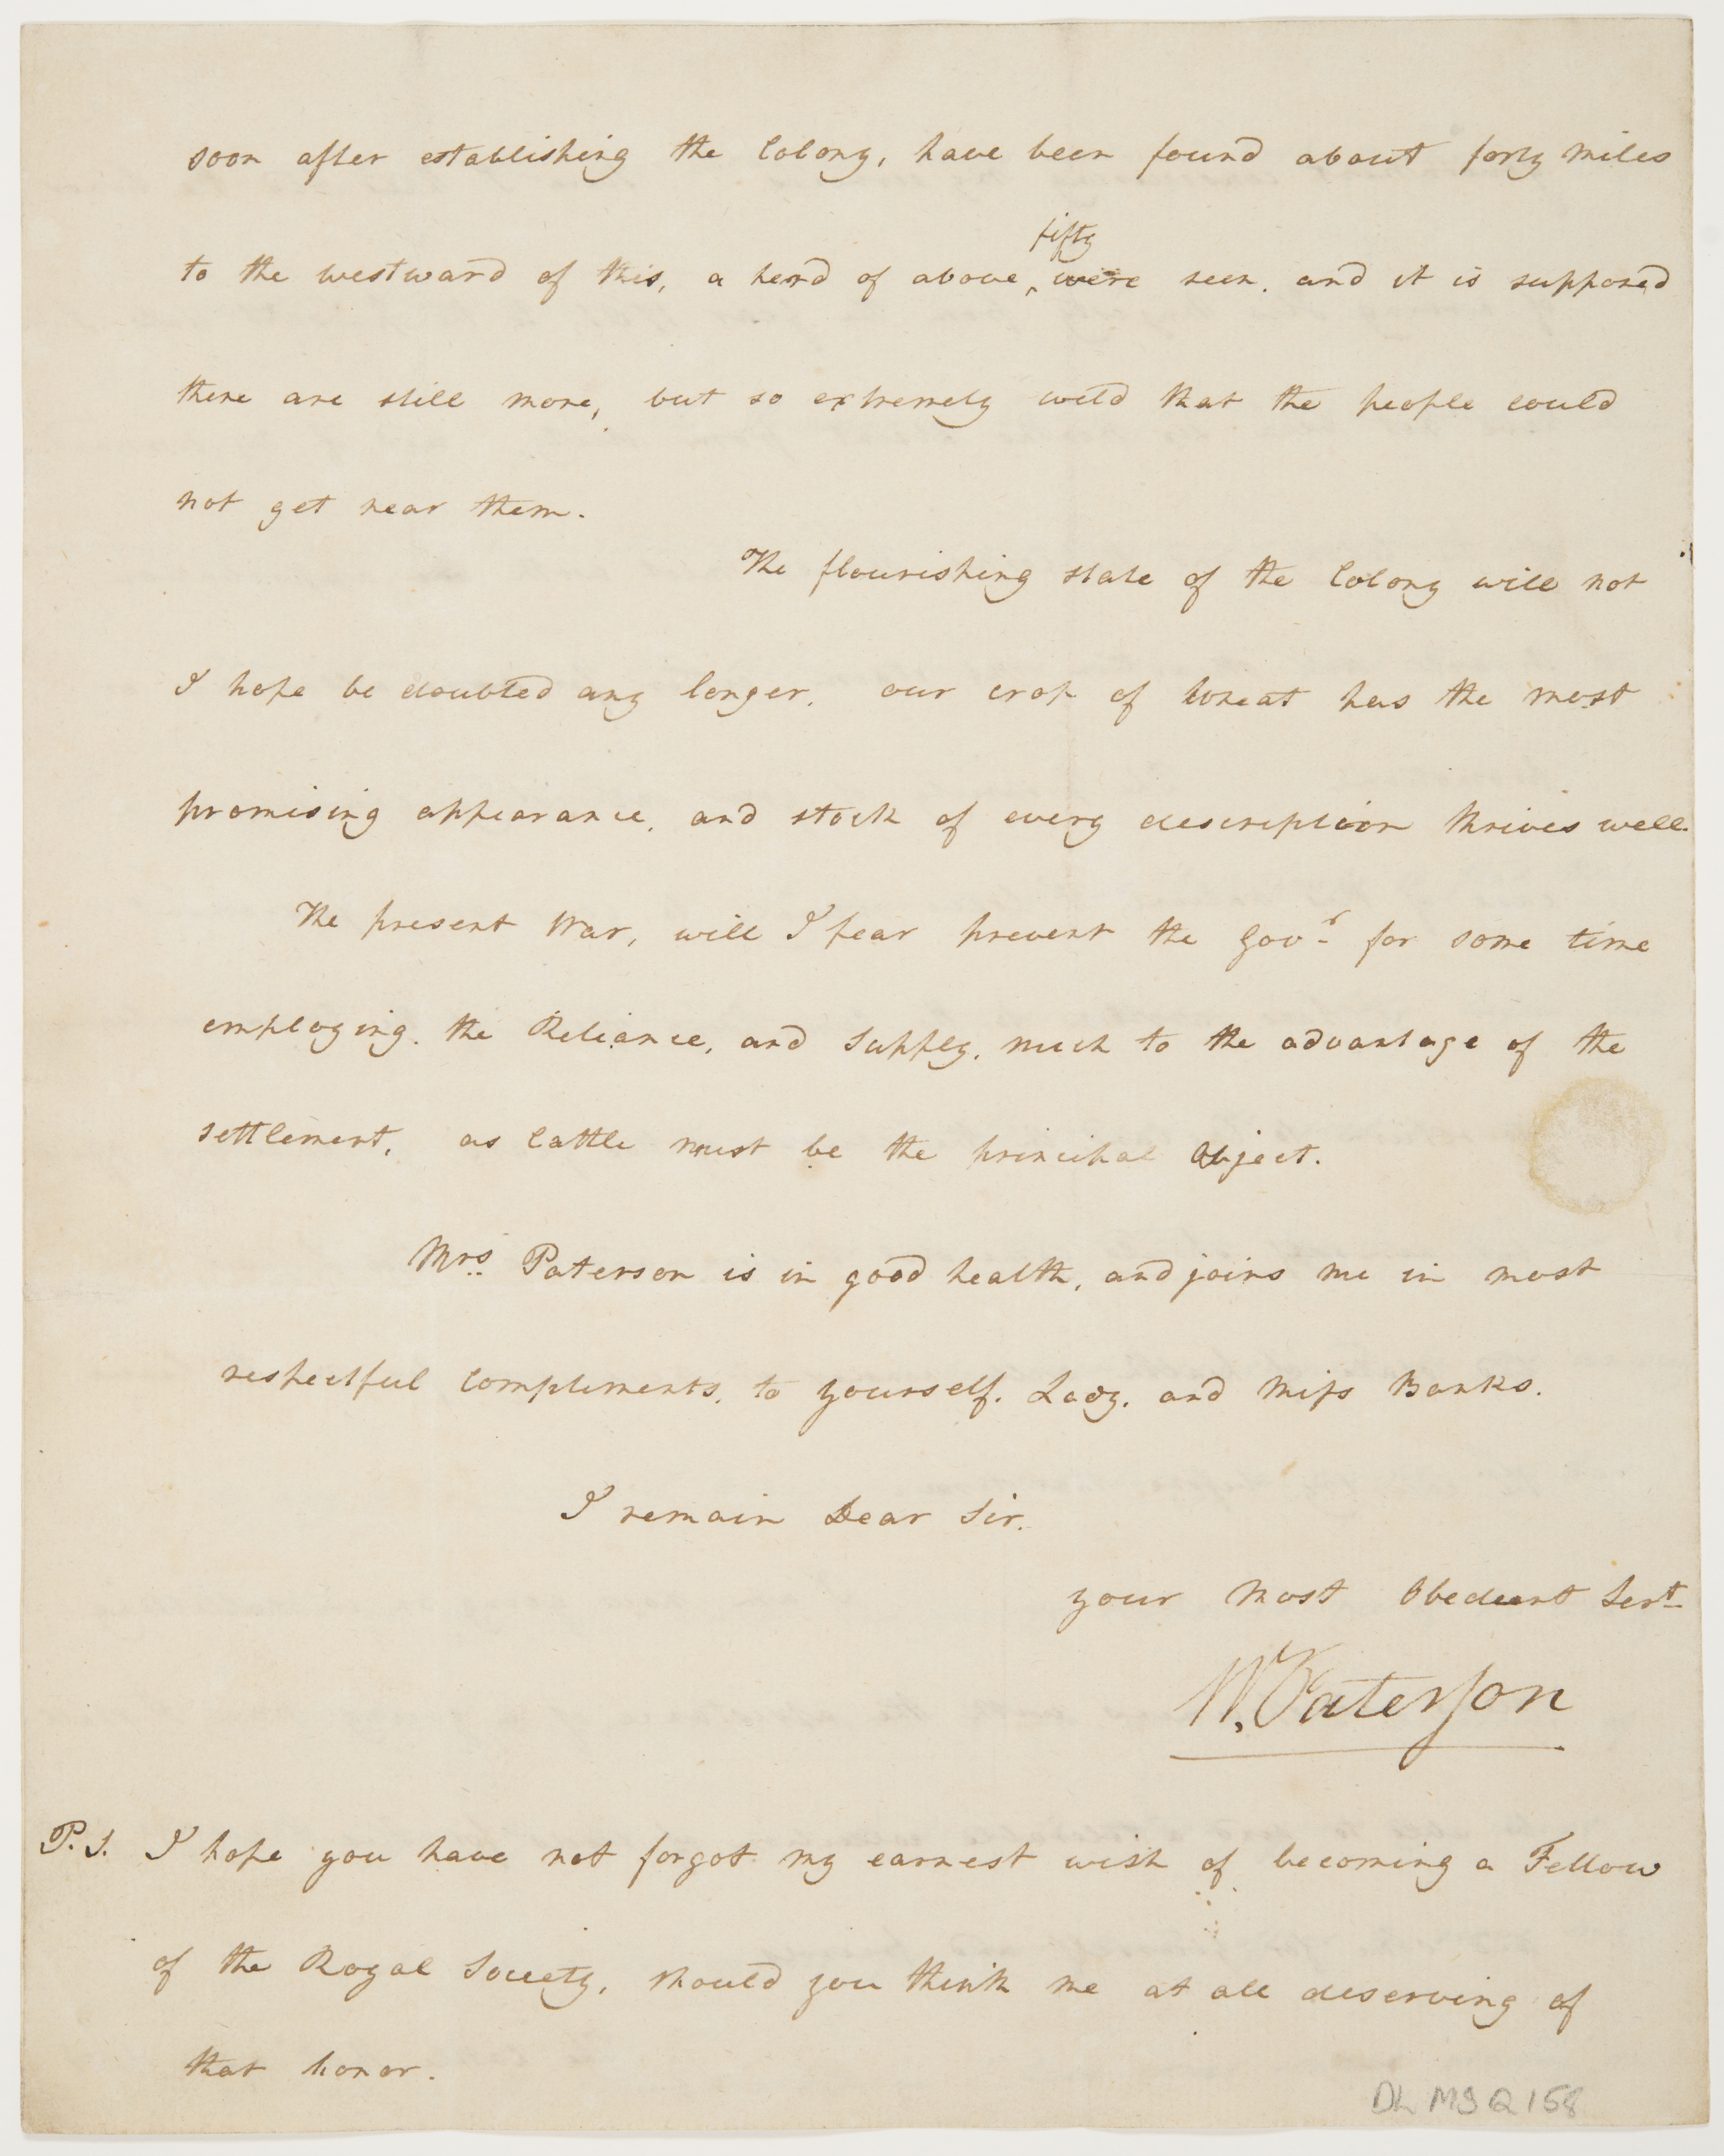 soon after establishing the Colony, have been found about forty miles
fifty
to the westward of this, a herd of above ‸ were seen. and it is supposed
there are still more, but so extremely wild that the people could
not get near them.
The flourishing state of the Colony will not
I hope be doubted any longer. our crop of Wheat has the most
promising appearance, and stock of every description thrives well.
The present War, will I fear prevent the Govr. for some time
employing. the Reliance, and Supply. much to the advantage of the
settlement, as Cattle must be the principal Object.
Mrs. Paterson is in good health, and joins me in most
respectful Compliments, to yourself. Lady. and Miſs Banks.
I remain Dear Sir.
your Most Obedient Sert.
W. Paterſon
P.S. I hope you have not forgot my earnest wish of becoming a Fellow
of the Royal Society, should you think me at all deserving of
that honor.
DL MS Q 158